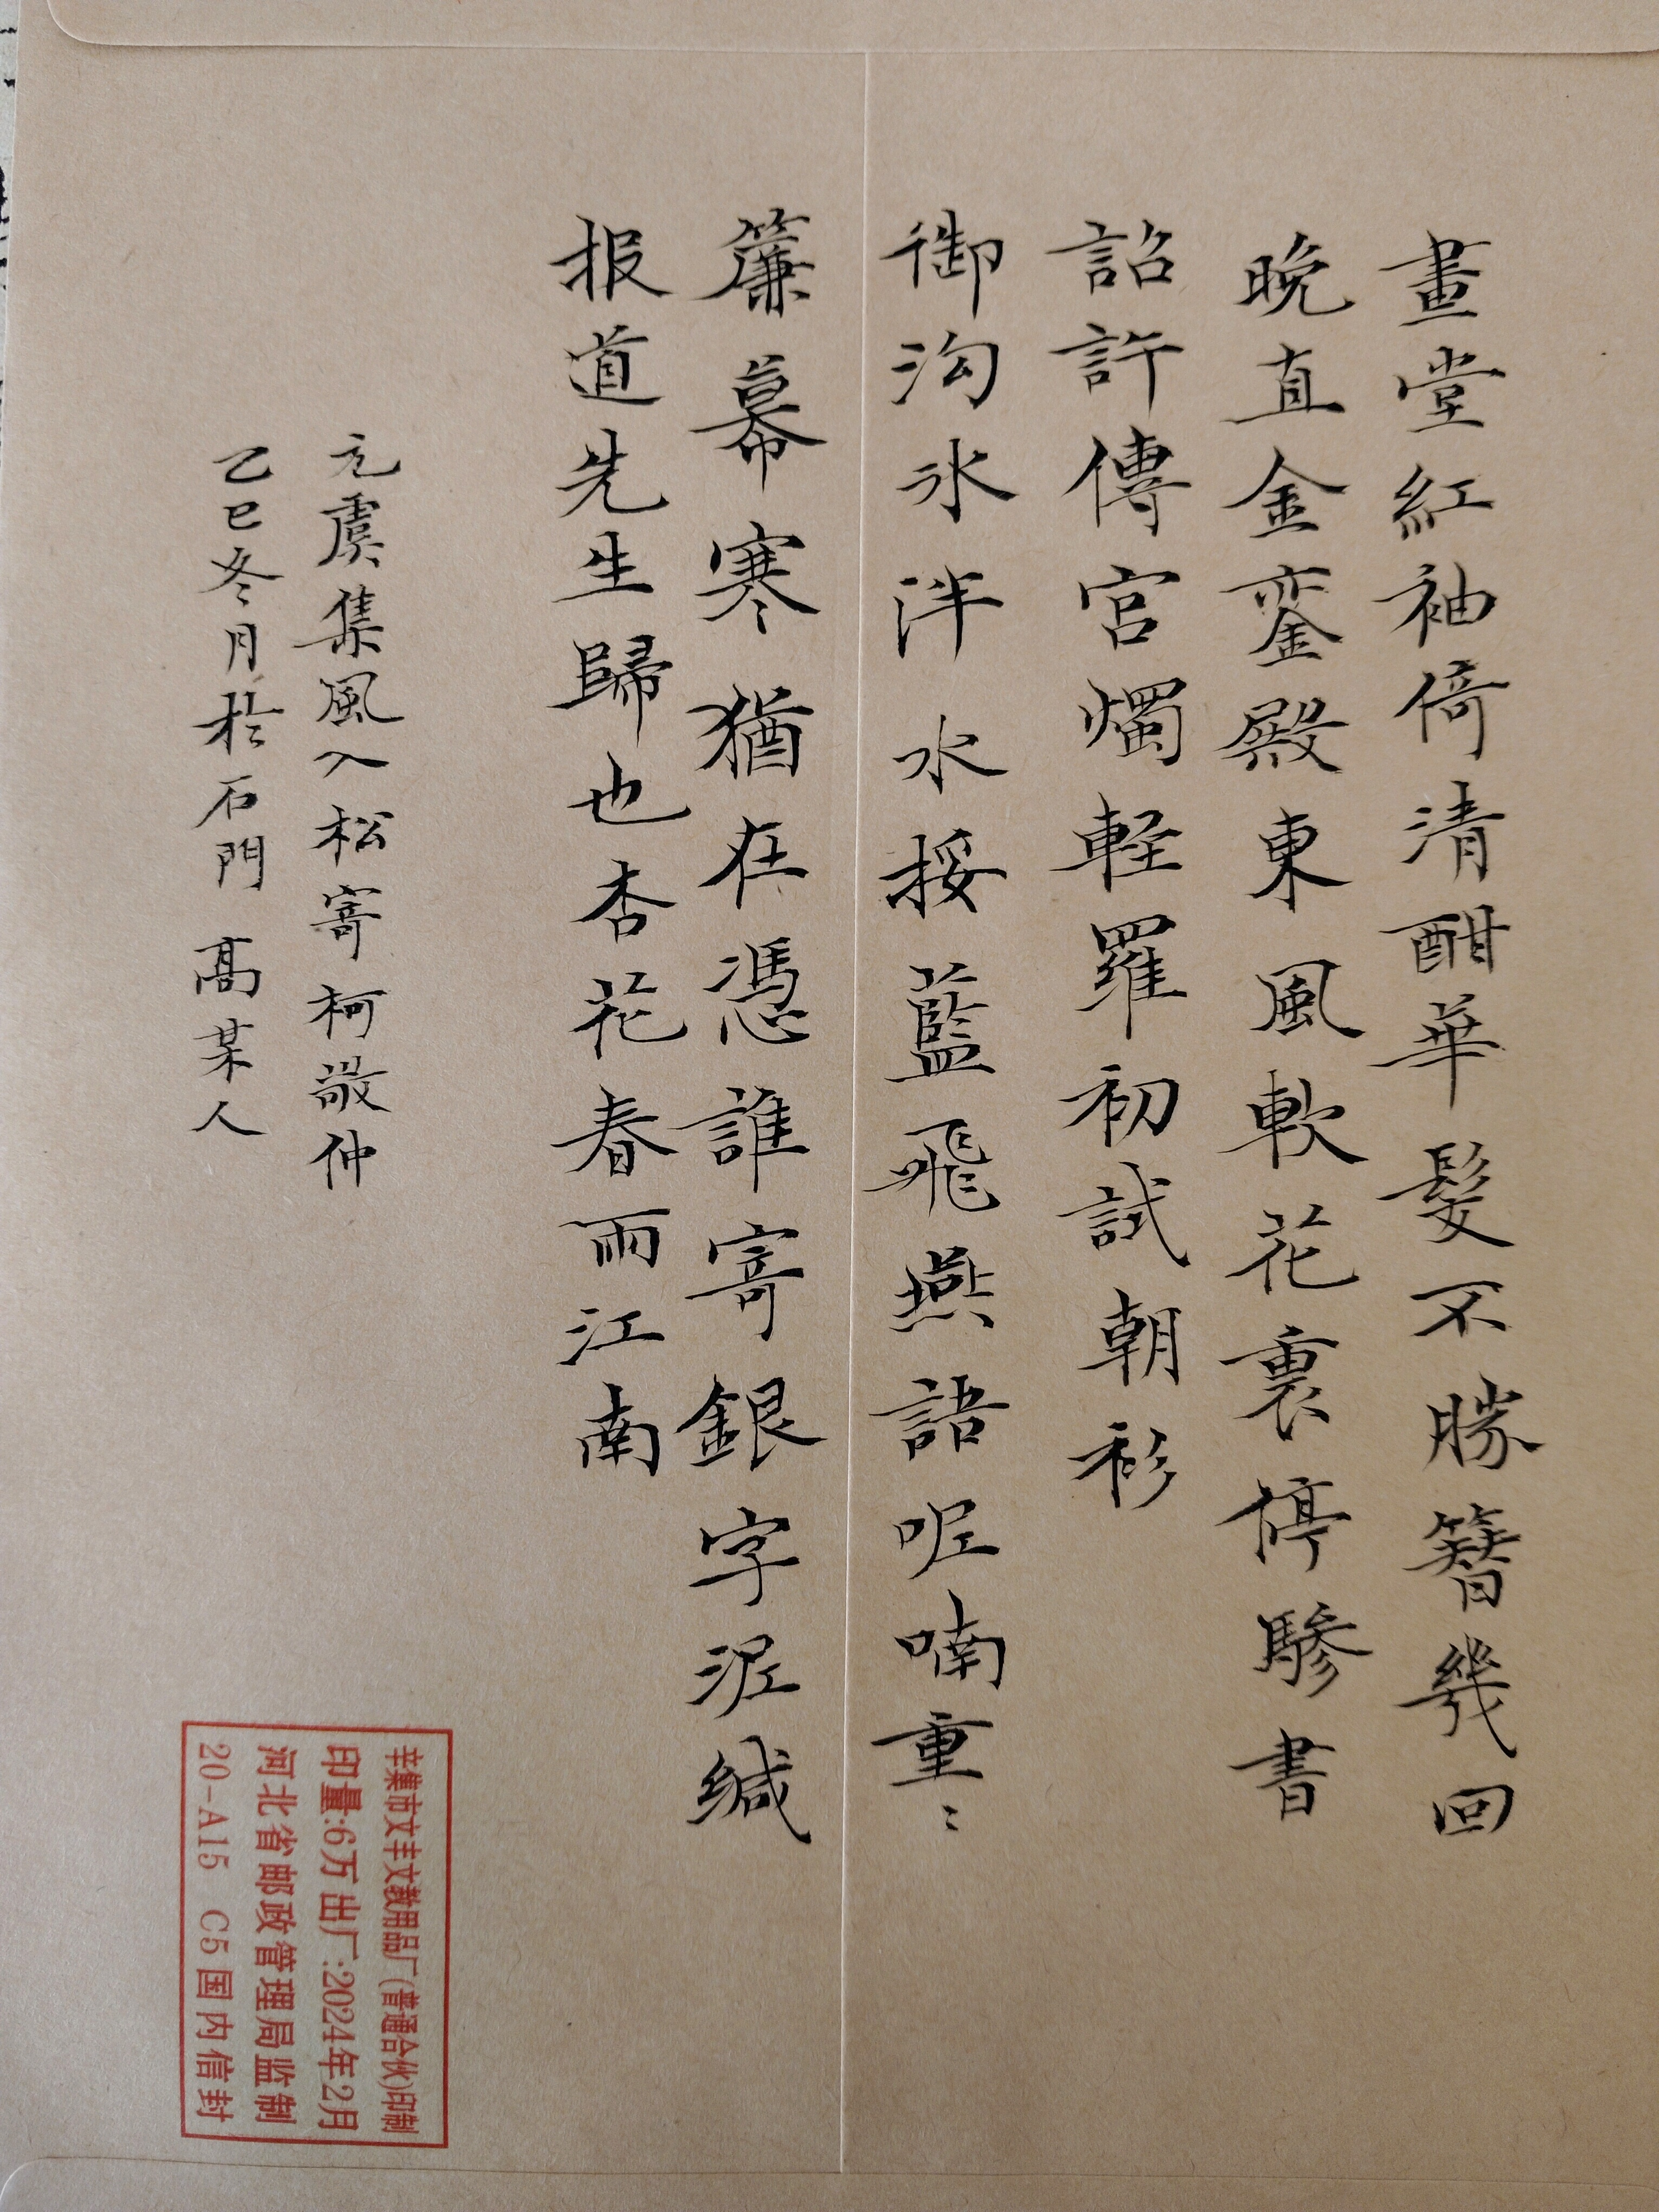 畫堂紅袖倚清酣華髮不勝簪幾回
晚直金鑾殿東風軟花裏停驂書
詔許傳宮燭軽羅初試朝衫
御沟氷泮水挼藍飛燕語呢喃重〻
簾幕寒猶在憑誰寄銀字泥缄
报道先生歸也杏花春雨江南
元虞集風入松寄柯敬仲
乙巳冬月於石門 髙某人
辛集市文丰文教用品厂(普通合伙)印制
印量:6万 出厂:2024年2月
河北省邮政管理局监制
20-A15 C5国内信封